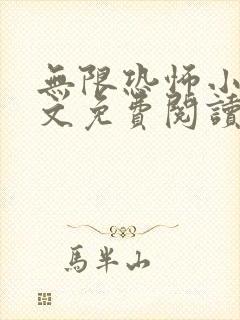 無限恐怖小
文免費閱讀
馬半山